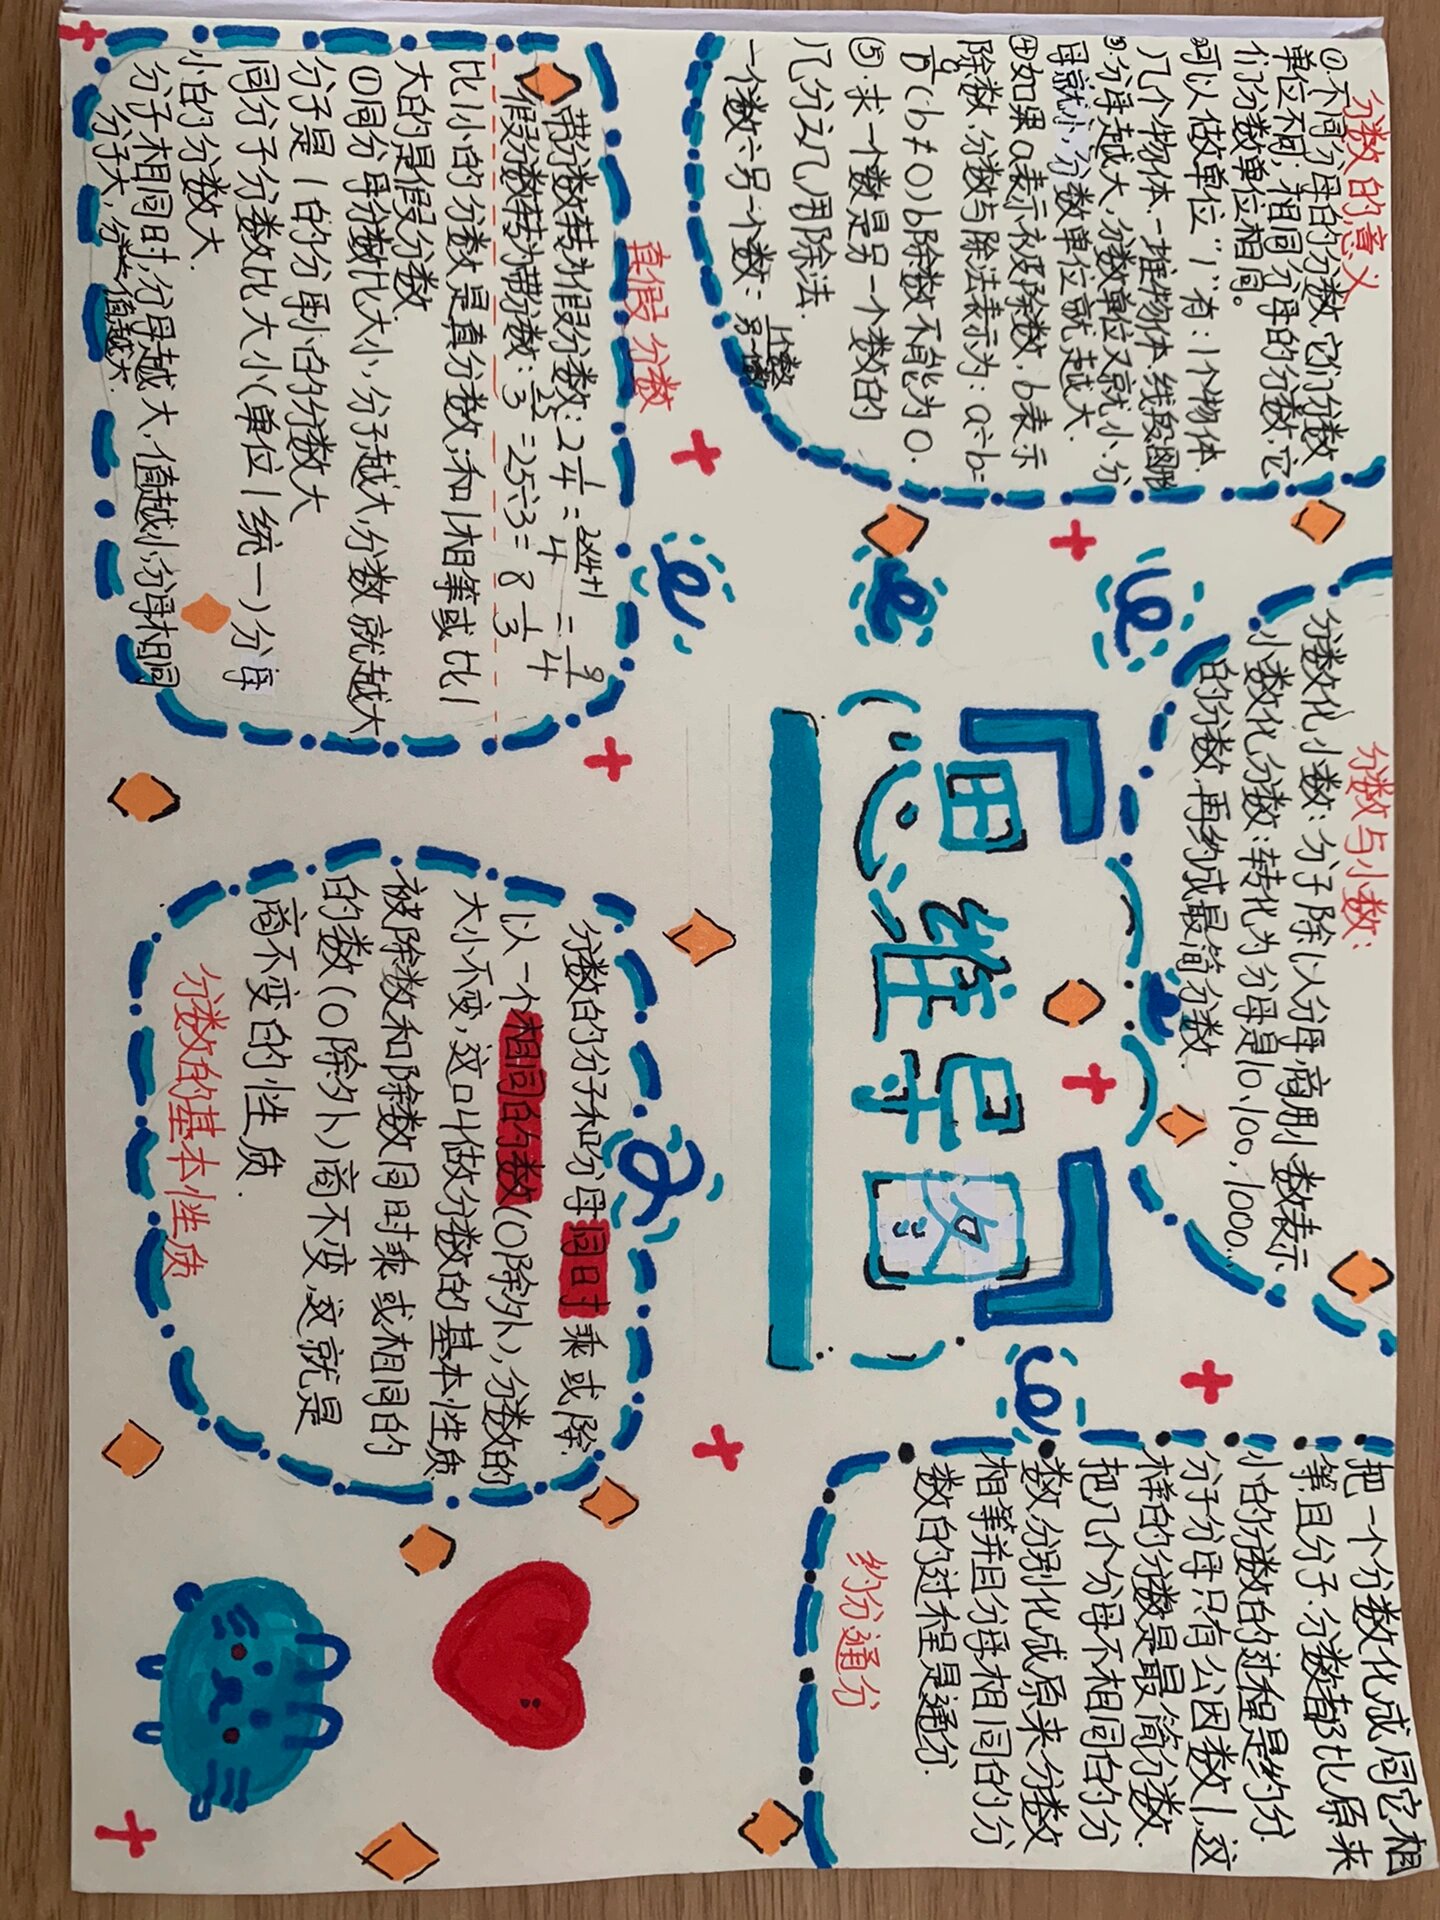 分数的意义
①.不同分母的分数,它们分数
单位不同,相同分母的分数,它
们分数单位相同。
②可以做单位“1”有:1个物体.
几个物体.一堆物体.线段图形
③.分母越大,分数单位又就小.分
母就小,分数单位就越大.
④如果a表示被除数.b表示
除数,分数与除法表示为:a÷b=
a/b(b≠0)b除数不能为0.
⑤.求一个数是另一个数的
几分之几用除法.
一个数÷另一个数=一个数/另一个数
分数与小数:
分数化小数:分子除以分母,商用小数表示
小数化分数:转化为分母是10.100,1000...
的分数,再约成最简分数.
把一个分数化成同它相
等,且分子.分数都比原来
小的分数的过程是约分.
分子分母只有公因数1,这
样的分数是最简分数.
把几个分母不相同的分
数,分别化成原来分数
相等并且分母相同的分
数的过程是通分.
约分通分
思维导图
真假分数
带分数转为假分数:2 1/4=(2×4+1)/4=9/4
假分数转为带分数:25/3=25÷3=8 1/3
比1小的分数是真分数,和1相等或比1
大的是假分数.
①同分母分数比大小,分子越大,分数就越大
分子是1的分母小的分数大
同分子分数比大小(单位1统一)分母
小的分数大.
分子相同时,分母越大,值越小,分母相同
分子大,分数值越大.
分数的分子和分母同时乘或除
以一个相同的数(0除外),分数的
大小不变,这叫做分数的基本性质
被除数和除数同时乘或相同的
的数(0除外)商不变,这就是
商不变的性质.
分数的基本性质